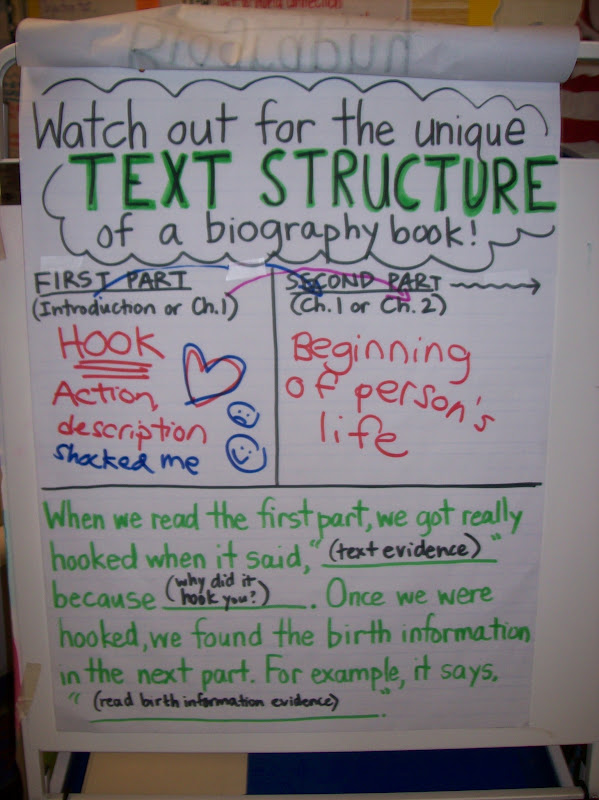 Biography
Watch out for the unique
TEXT STRUCTURE
of a biography book!
FIRST PART
(Introduction or Ch.1)
HOOK
Action,
description
shocked me
SECOND PART
(Ch. 1 or Ch. 2)
Beginning
of person's
life
When we read the first part, we got really
hooked when it said, "(text evidence)"
because (why did it
hook you?). Once we were
hooked, we found the birth information
in the next part. For example, it says,
"(read birth information evidence)."